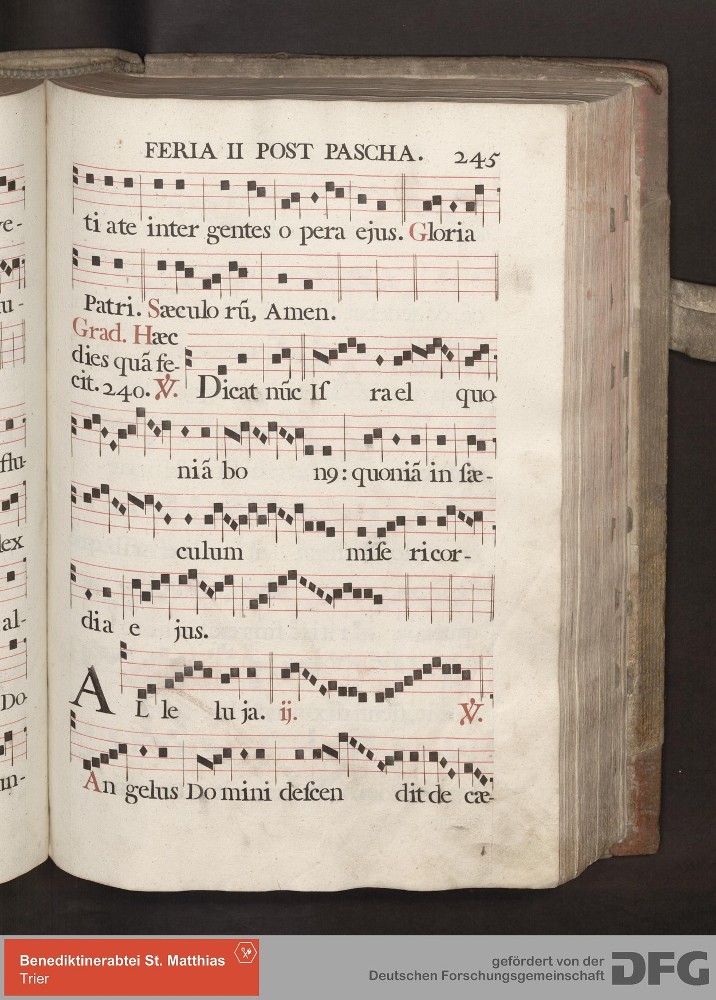 FERIA II POST PASCHA. 245
ti ate inter gentes o pera ejus. Gloria
Patri. Sæculo rũ, Amen.
Grad. Hæc
dies quã fe-
cit. 240. ℣. Dicat nũc Iſ ra el quo
niã bo n9: quoniã in ſæ-
culum miſe ricor-
dia e jus.
AL le lu ja. ij. ℣.
An gelus Do mini deſcen dit de cæ-
ve-
u-
flu-
lex
al-
Do-
un-
Benediktinerabtei St. Matthias
Trier
gefördert von der
Deutschen Forschungsgemeinschaft
DFG